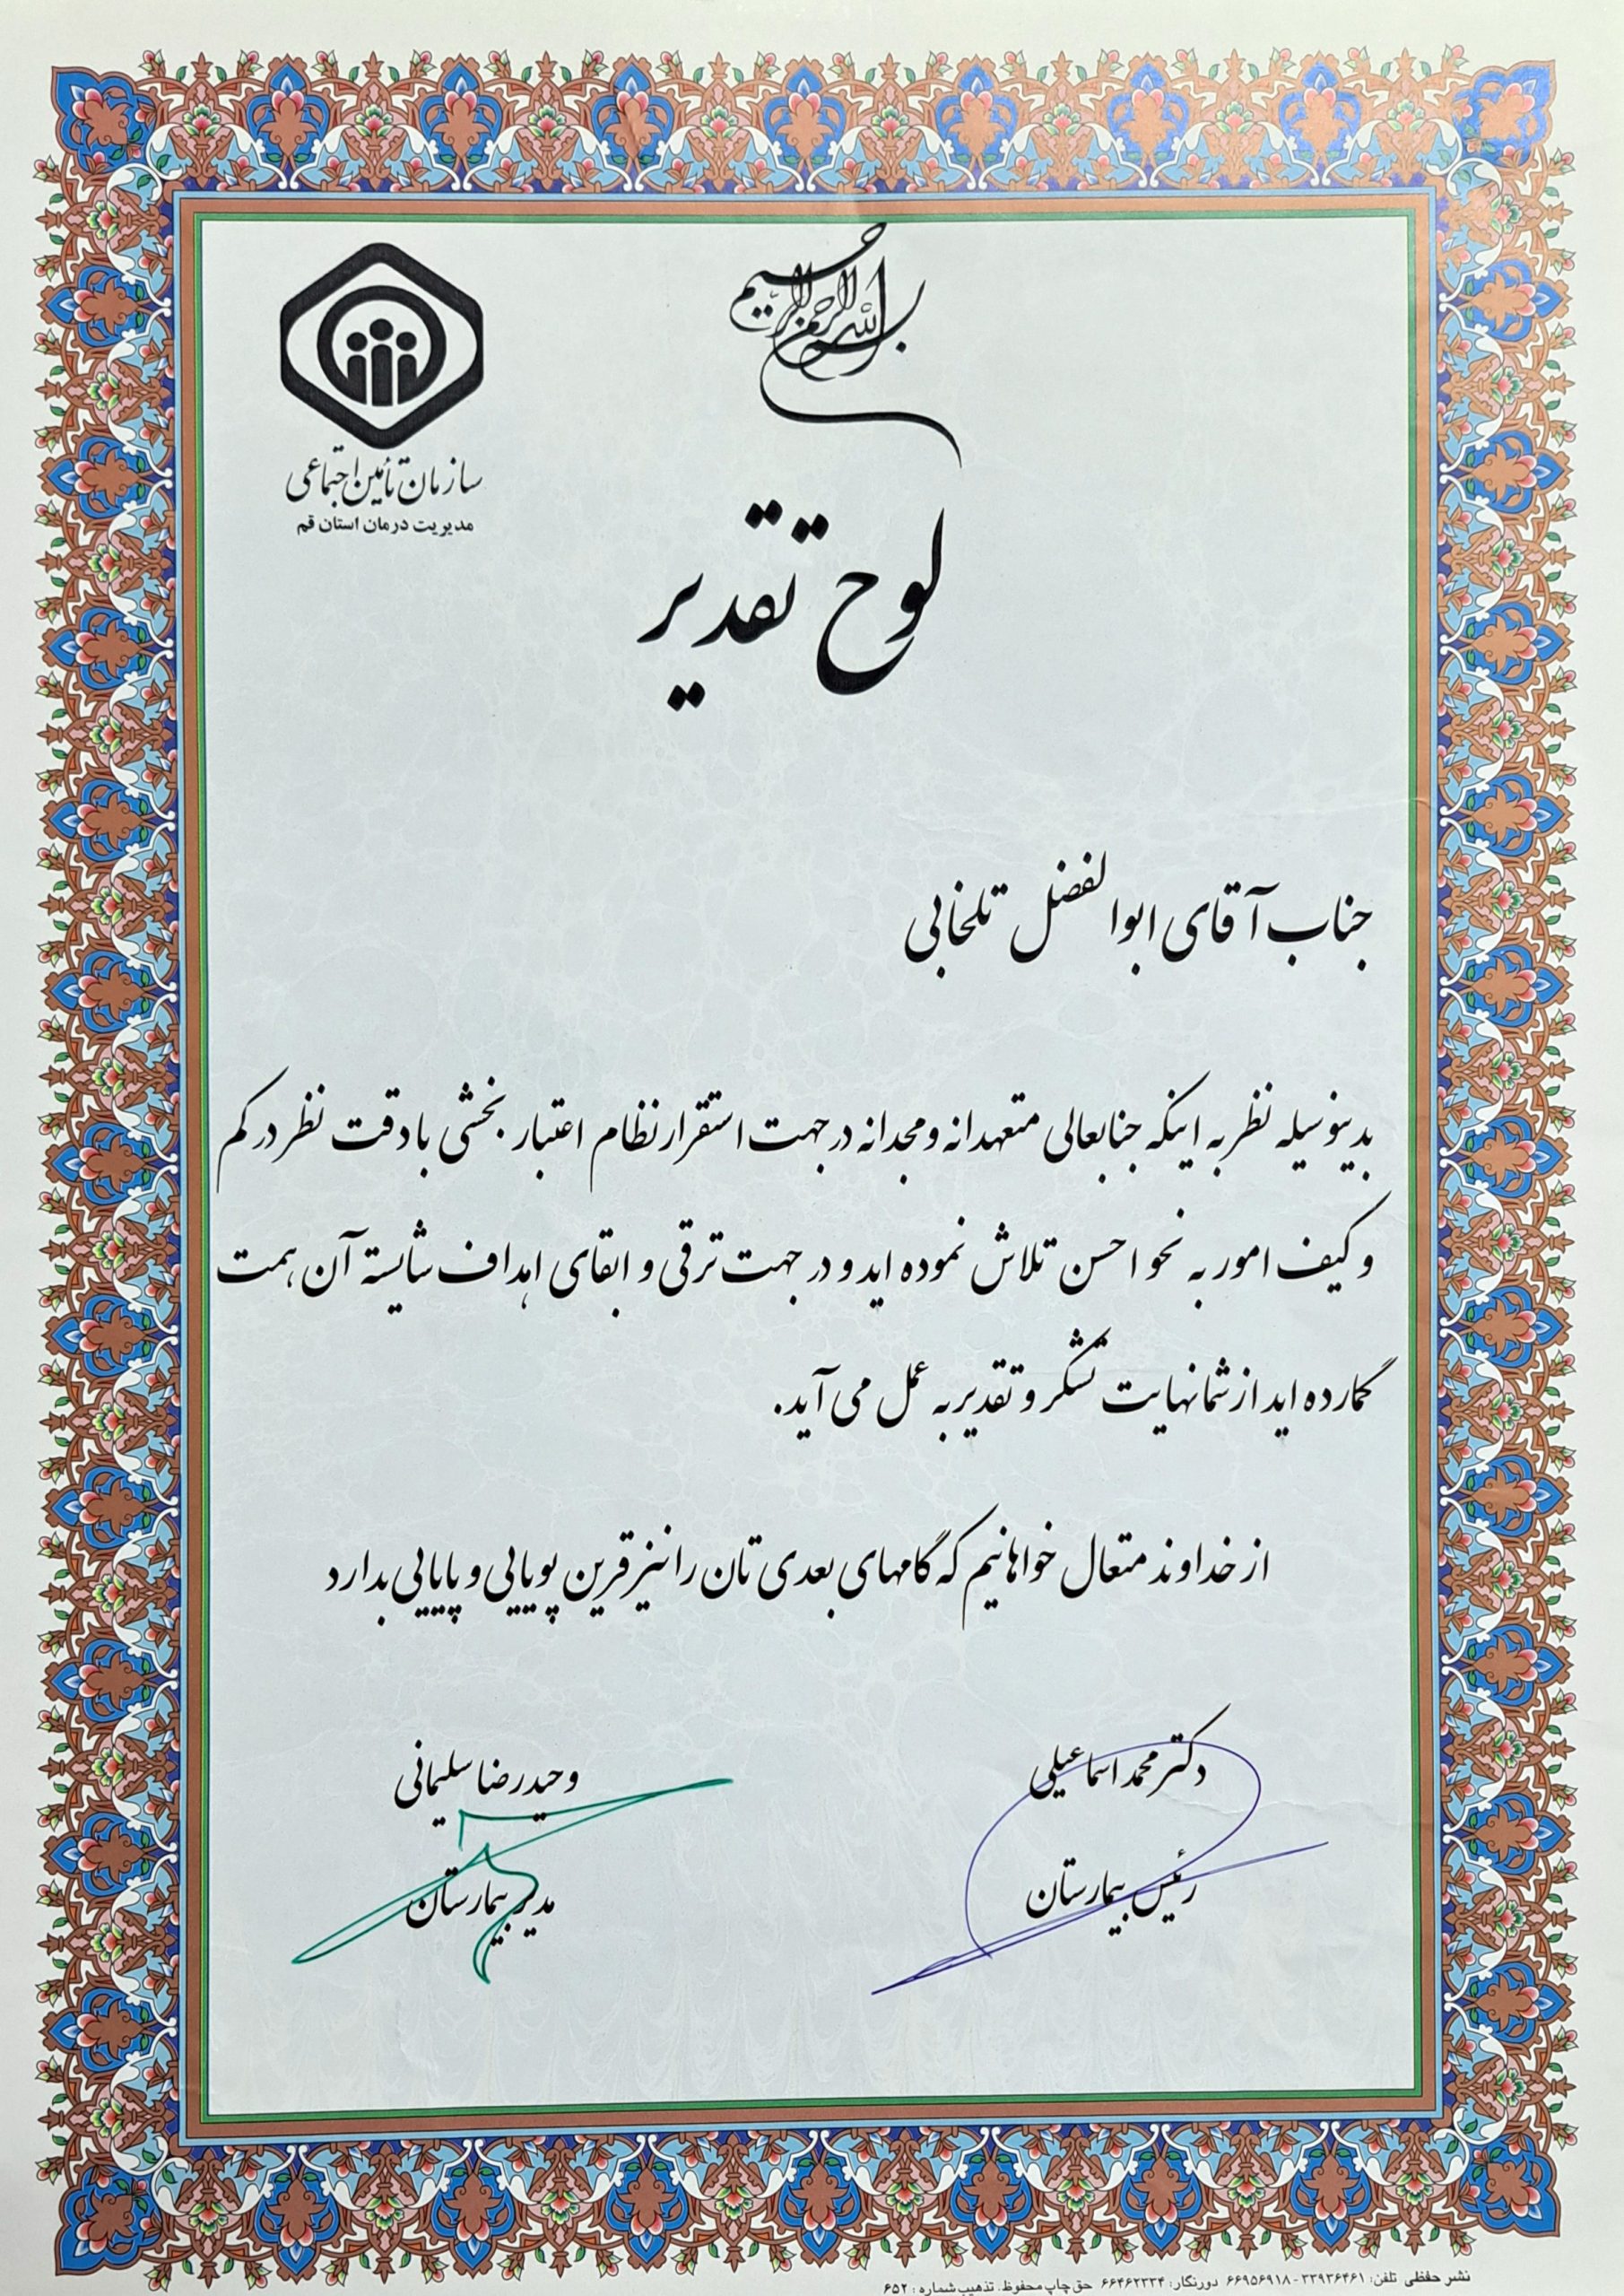 بسم الله الرحمن الرحیم
سازمان تأمین اجتماعی
مدیریت درمان استان قم
لوح تقدیر
جناب آقای ابوالفضل تلخابی
بدینوسیله نظر به اینکه جنابعالی متعهدانه و مجدانه در جهت استقرار نظام اعتبار بخشی با دقت نظر در کم
و کیف امور به نحو احسن تلاش نموده اید و در جهت ترقی و ابقای اهداف شایسته آن همت
گمارده اید از شما نهایت تشکر و تقدیر به عمل می آید.
از خداوند متعال خواهانیم که گامهای بعدی تان را نیز قرین پویایی و پایایی بدارد
دکتر محمد اسماعیلی
رئیس بیمارستان
وحیدرضا سلیمانی
مدیر بیمارستان
نشر حفظی تلفن: ۳۳۹۳۶۴۶۱ - ۶۶۹۵۶۹۱۸ دورنگار: ۶۶۴۶۲۳۳۴ حق چاپ محفوظ. تذهیب شماره: ۶۵۲